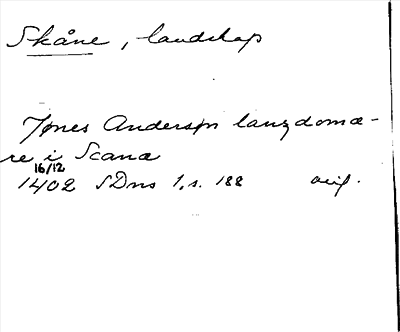 Skåne, landskap
Jønes Anderssøn lanzdoma-
re i Scana
16/12
1402 SDns 1, s. 188 orig.